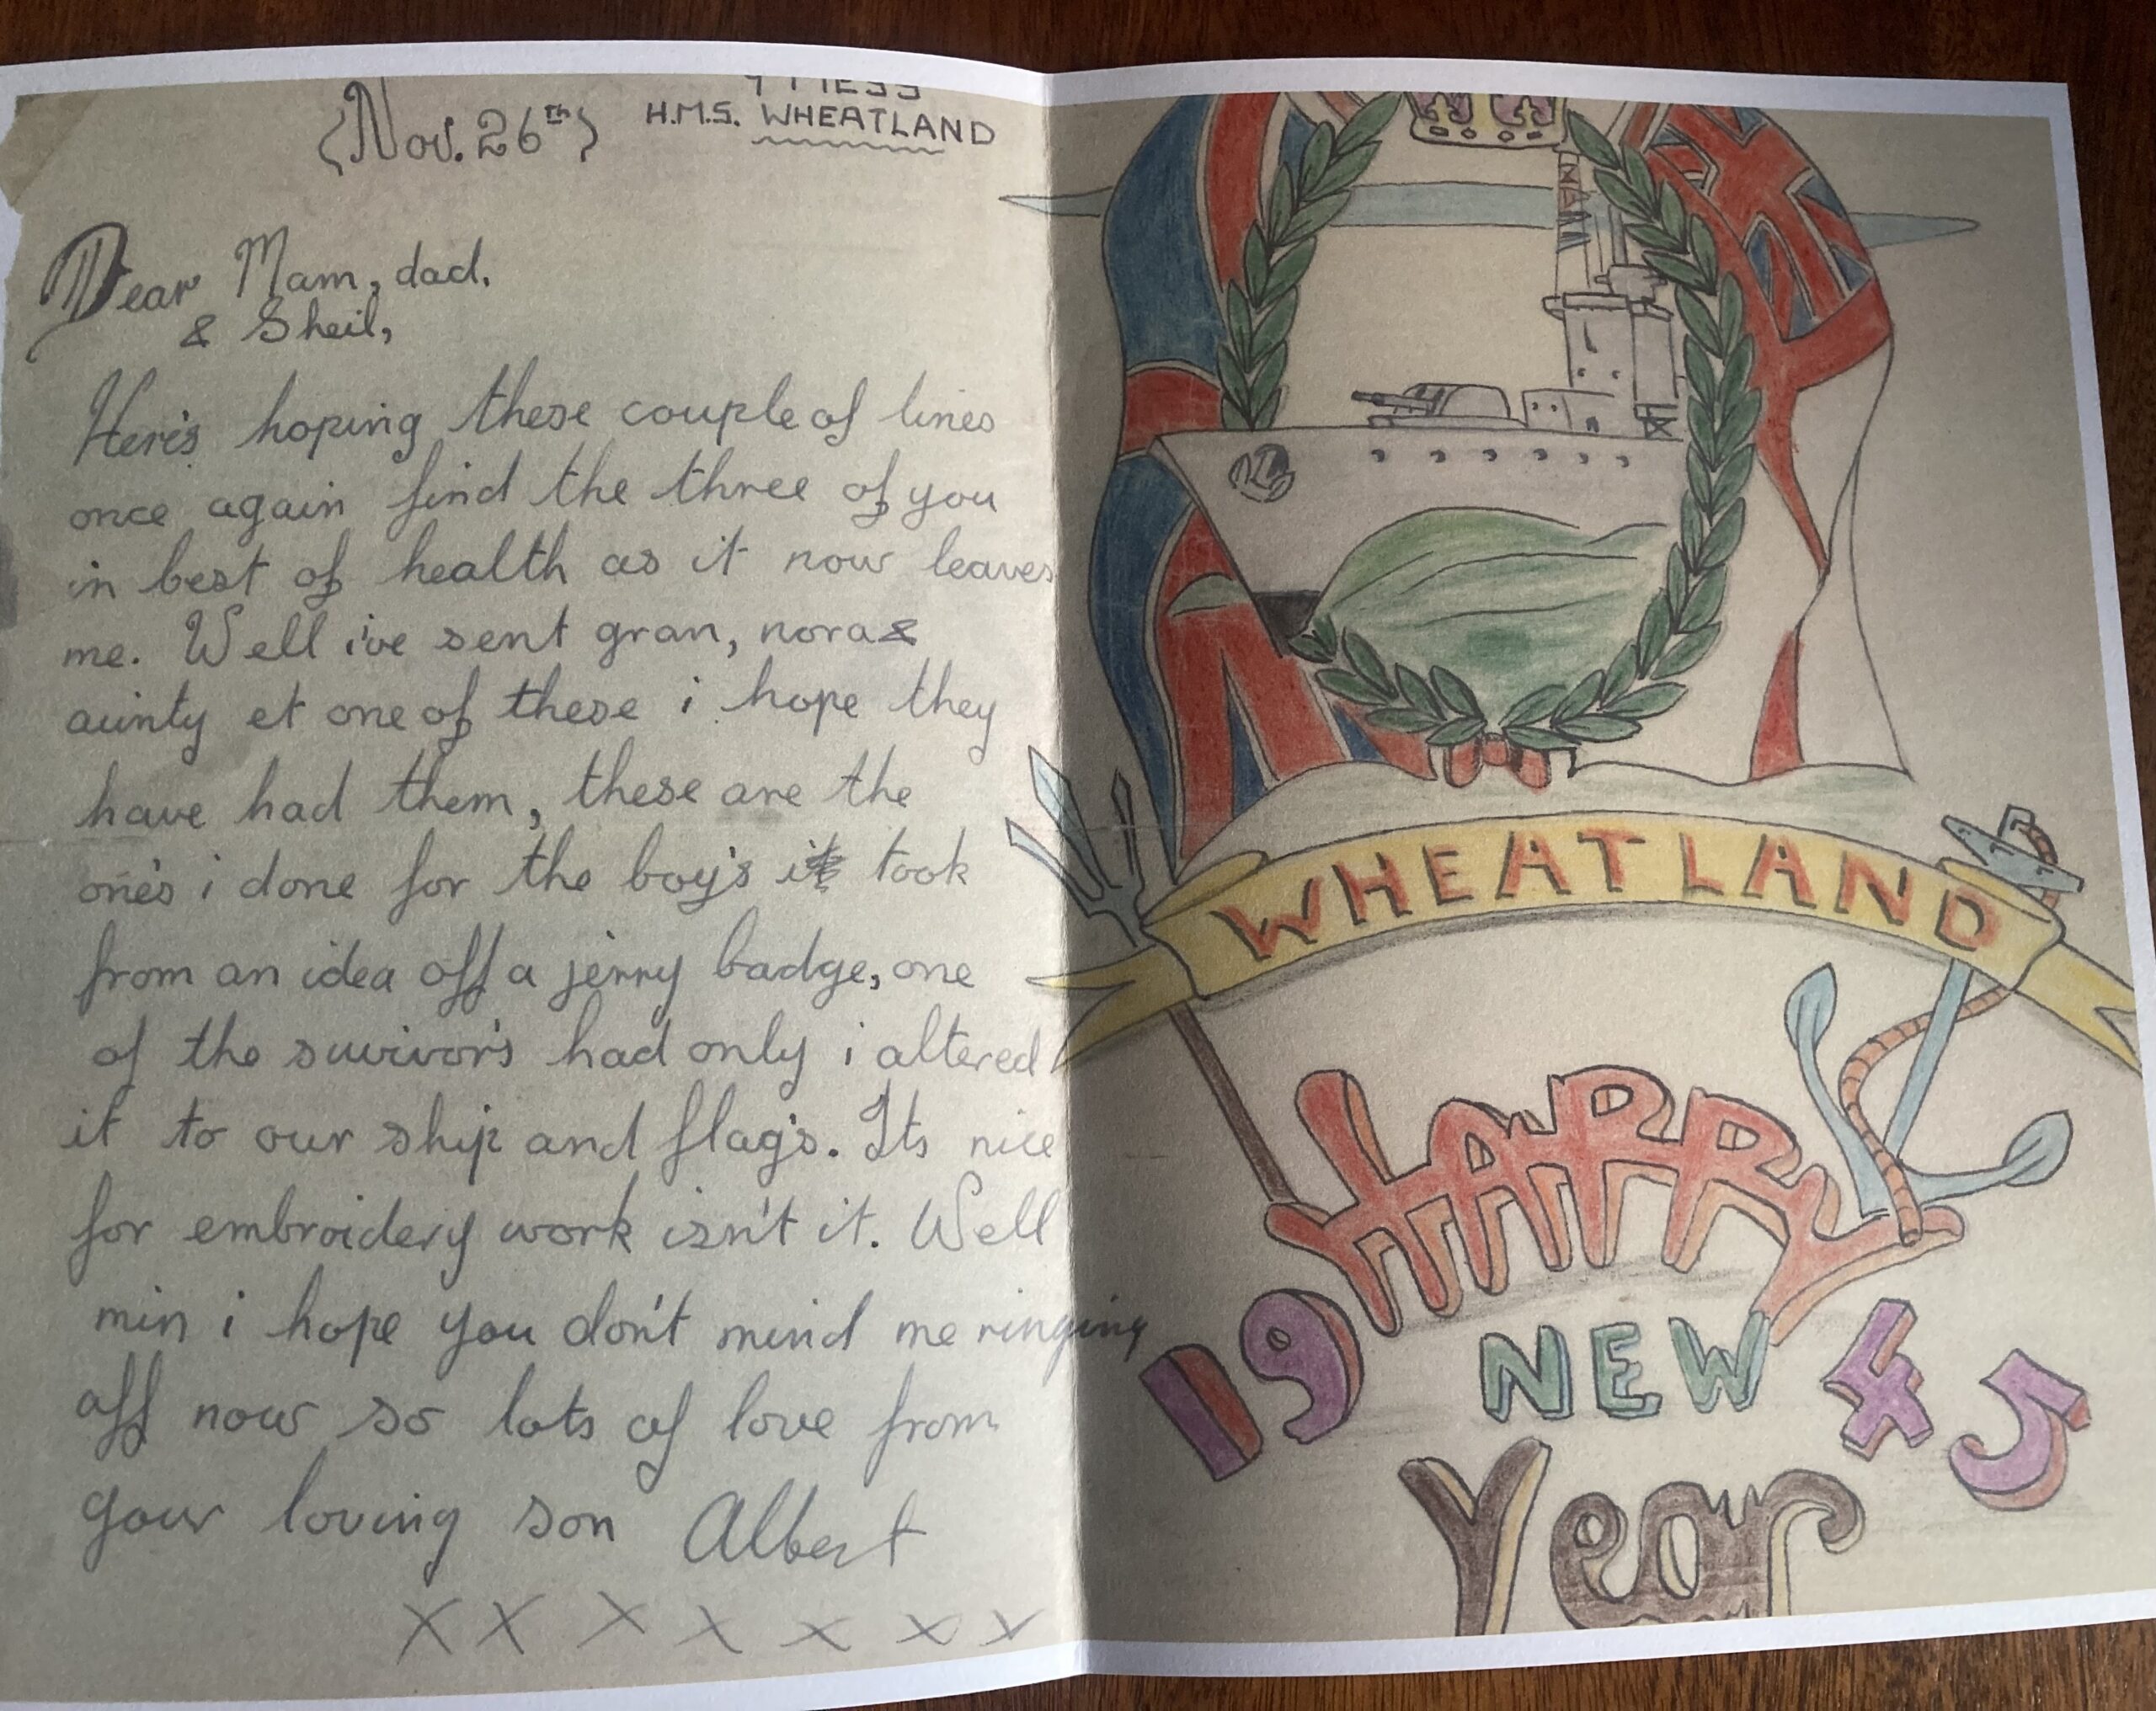 MESS
{Nov. 26th} H.M.S. WHEATLAND
Dear Mam, dad,
& Sheil,
Here's hoping these couple of lines
once again find the three of you
in best of health as it now leaves
me. Well i've sent gran, nora &
aunty et one of these i hope they
have had them, these are the
one's i done for the boy's it took
from an idea off a jerry badge, one
of the suvivor's had only i altered
it to our ship and flag's. Its nice
for embroidery work isn't it. Well
min i hope you don't mind me ringing
off now so lots of love from
your loving son Albert
X X X X X X X
WHEATLAND
HAPPY
1945
NEW
Year